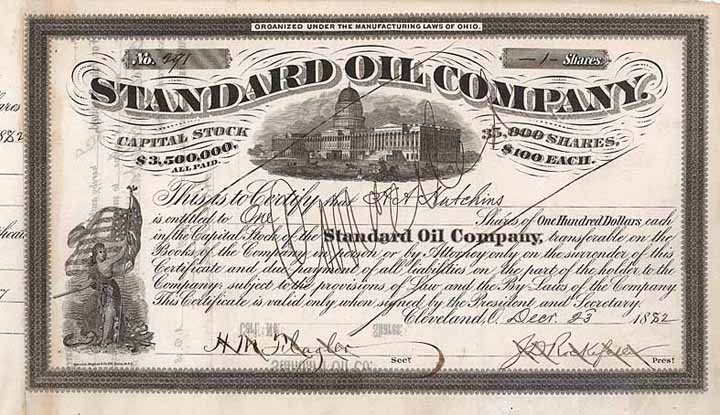 ORGANIZED UNDER THE MANUFACTURING LAWS OF OHIO.
No. 291
—1— Shares
STANDARD OIL COMPANY.
CAPITAL STOCK
$3,500,000.
ALL PAID.
35,000 SHARES,
$100 EACH.
This is to Certify that H A Hutchins
is entitled to One Shares of One Hundred Dollars, each
in the Capital Stock of the Standard Oil Company, transferable on the
Books of the Company in person or by Attorney only on the surrender of this
Certificate and due payment of all liabilities on the part of the holder to the
Company, subject to the provisions of Law and the By-Laws of the Company.
This Certificate is valid only when signed by the President and Secretary.
Cleveland, O. Decr 23 1882
H M Flagler Secy
J D Rockefeller Prest
STANDARD OIL CO.